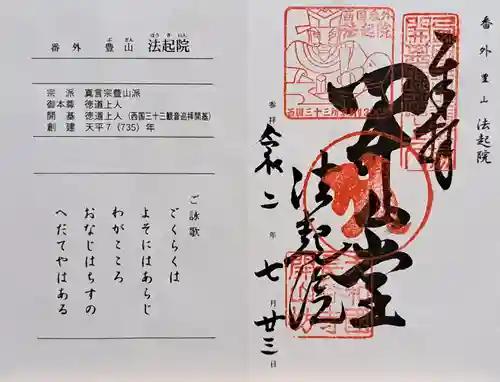 番外 豊山 法起院
ぶざん ほうきいん
宗派 真言宗豊山派
御本尊 徳道上人
開基 徳道上人(西国三十三観音巡拝開基)
創建 天平7(735)年
ご詠歌
ごくらくは
よそにはあらじ
わがこころ
おなじはちすの
へだてやはある
番外 豊山 法起院
奉拝
開山堂
法起院
参拝 令和二年七月廿三日